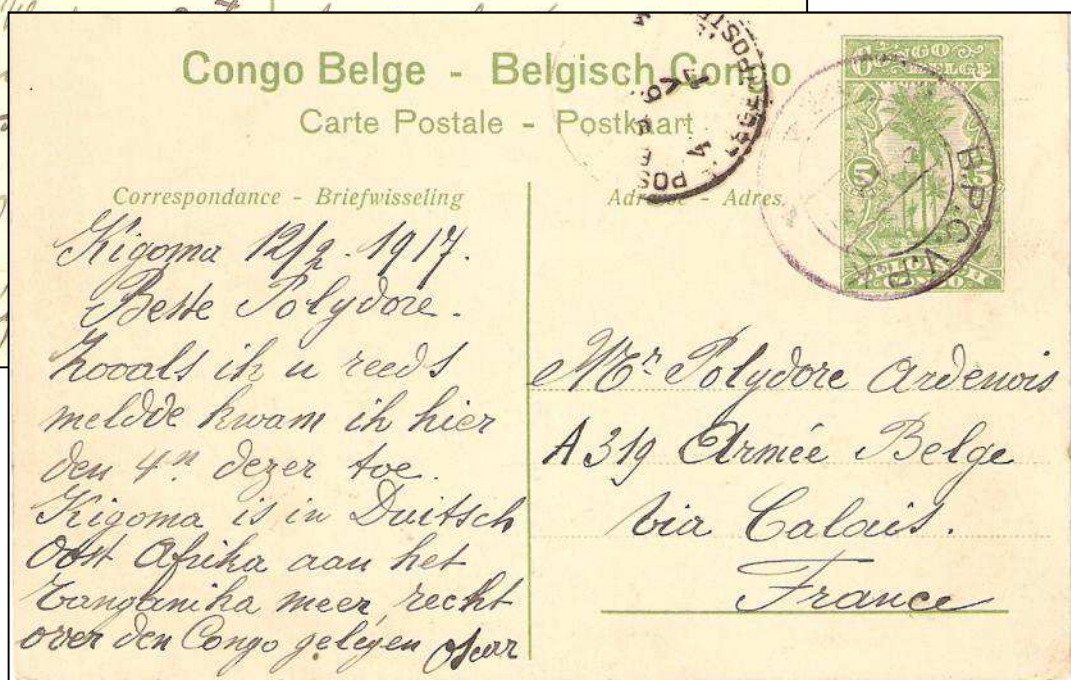 Congo Belge - Belgisch Congo
Carte Postale - Postkaart
Correspondance - Briefwisseling
Adresse - Adres.
CONGO
BELGE
5
15
B.P.C.V.P.K
Kigoma 12/2. 1917.
Beste Polydore.
Zooals ik u reeds
meldde kwam ik hier
den 4n dezer toe.
Kigoma is in Duitsch
Oost Afrika aan het
Tanganika meer recht
over den Congo gelegen Oscar
Mr. Polydore Ardenois
A 319 Armée Belge
via Calais.
France